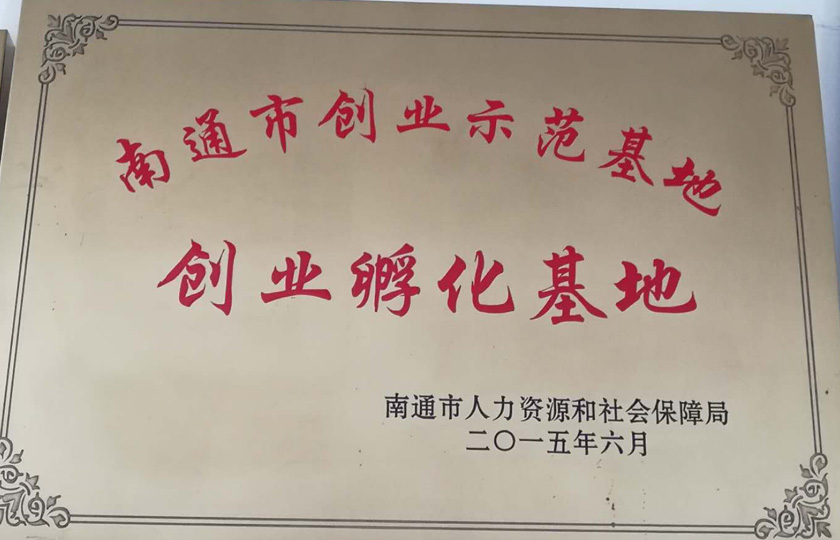 南通市创业示范基地
创业孵化基地
南通市人力资源和社会保障局
二〇一五年六月